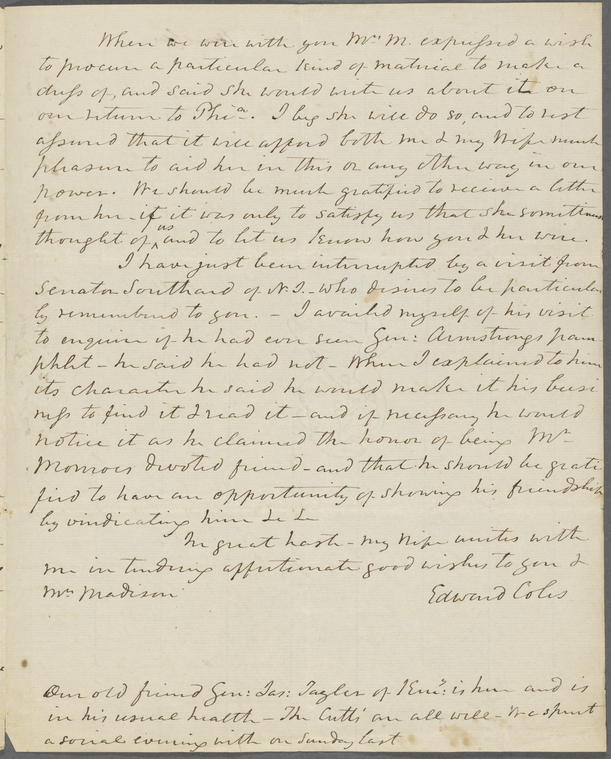 When we were with you Mrs M. expressed a wish
to procure a particular kind of material to make a
dress of, and said she would write us about it on
our return to Phia. I beg she will do so, and to rest
assured that it will afford both me & my Wife much
pleasure to aid her in this or any other way in our
power. We should be much gratified to receive a letter
from her - if it was only to satisfy us that she sometimes
thought of us and to let us know how you & her were.
I have just been interrupted by a visit from
Senator Southard of N.J. - who desires to be particular
ly remembered to you. - I availed myself of his visit
to enquire if he had ever seen Gen: Armstrongs pam
phlet - he said he had not - When I explained to him
its character he said he would make it his busi
ness to find it & read it - and if necessary he would
notice it as he claimed the honor of being Mr
Monroes devoted friend - and that he should be grati
fied to have an opportunity of showing his friendship
by vindicating him &c &c
In great haste - my Wife unites with
me in tendering affectionate good wishes to you &
Mrs Madison
Edward Coles
Our old friend Gen: Jas: Taylor of Keny: is here and is
in his usual health - The Cutts' are all well - We spent
a social evening with on Sunday last